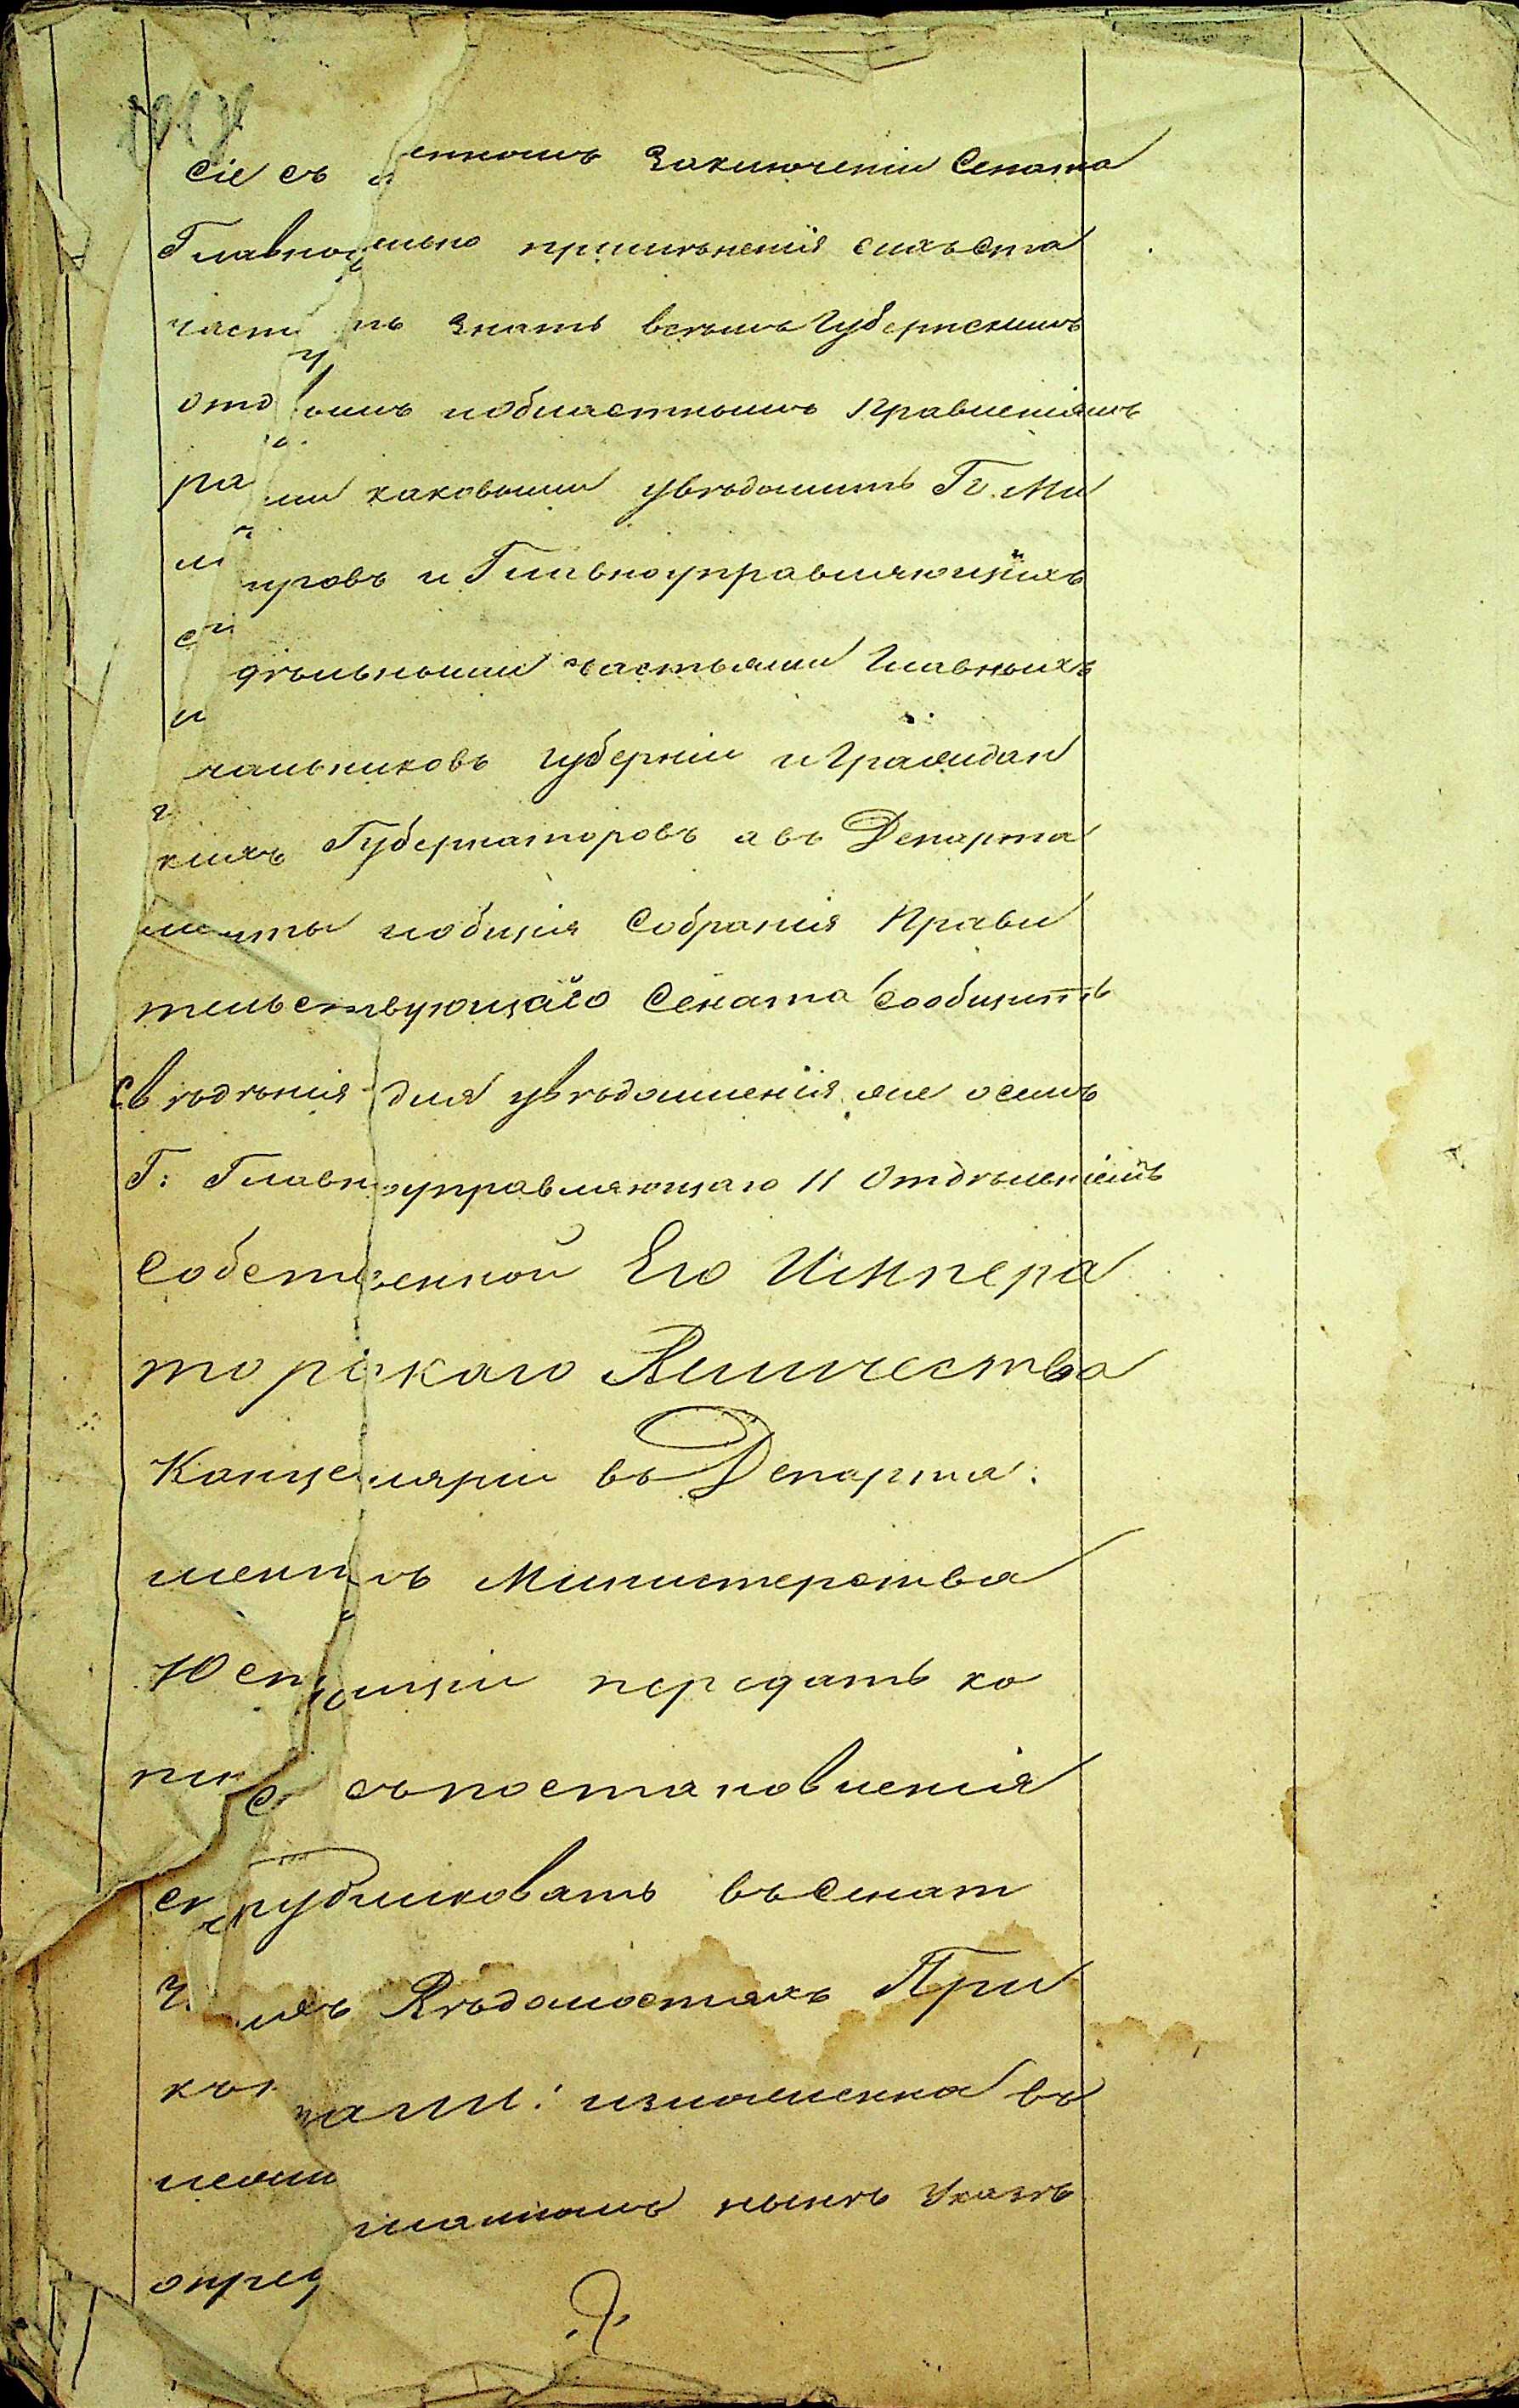 сіе съ енномъ Заключеніи Сената
Главно льно примѣненія сихъ ста
част ть знать всѣмъ Губернскимъ
отд вымъ и областнымъ правленіямъ
ра ми каковыми увѣдомить Гг. Ми
тровъ и Главноуправляющихъ
дѣльными частьями Главныхъ
чальниковъ губерніи и Граждан
кихъ Губернаторовъ а въ Департа
менты и общія Собранія Прави
тельствующаго Сената сообщить
свѣдѣнія для увѣдомленія же о семъ
Г: Главноуправляющаго II Отдѣленіемъ
Собственной Его Импера
торскаго Величества
Канцеляріи въ Департа:
ментъ Министерства
Юстиціи передать ко
пію съ постановленія
публиковать въ Сенат
ихъ Вѣдомостяхъ При
изложенна въ
нынѣ Указѣ
опред